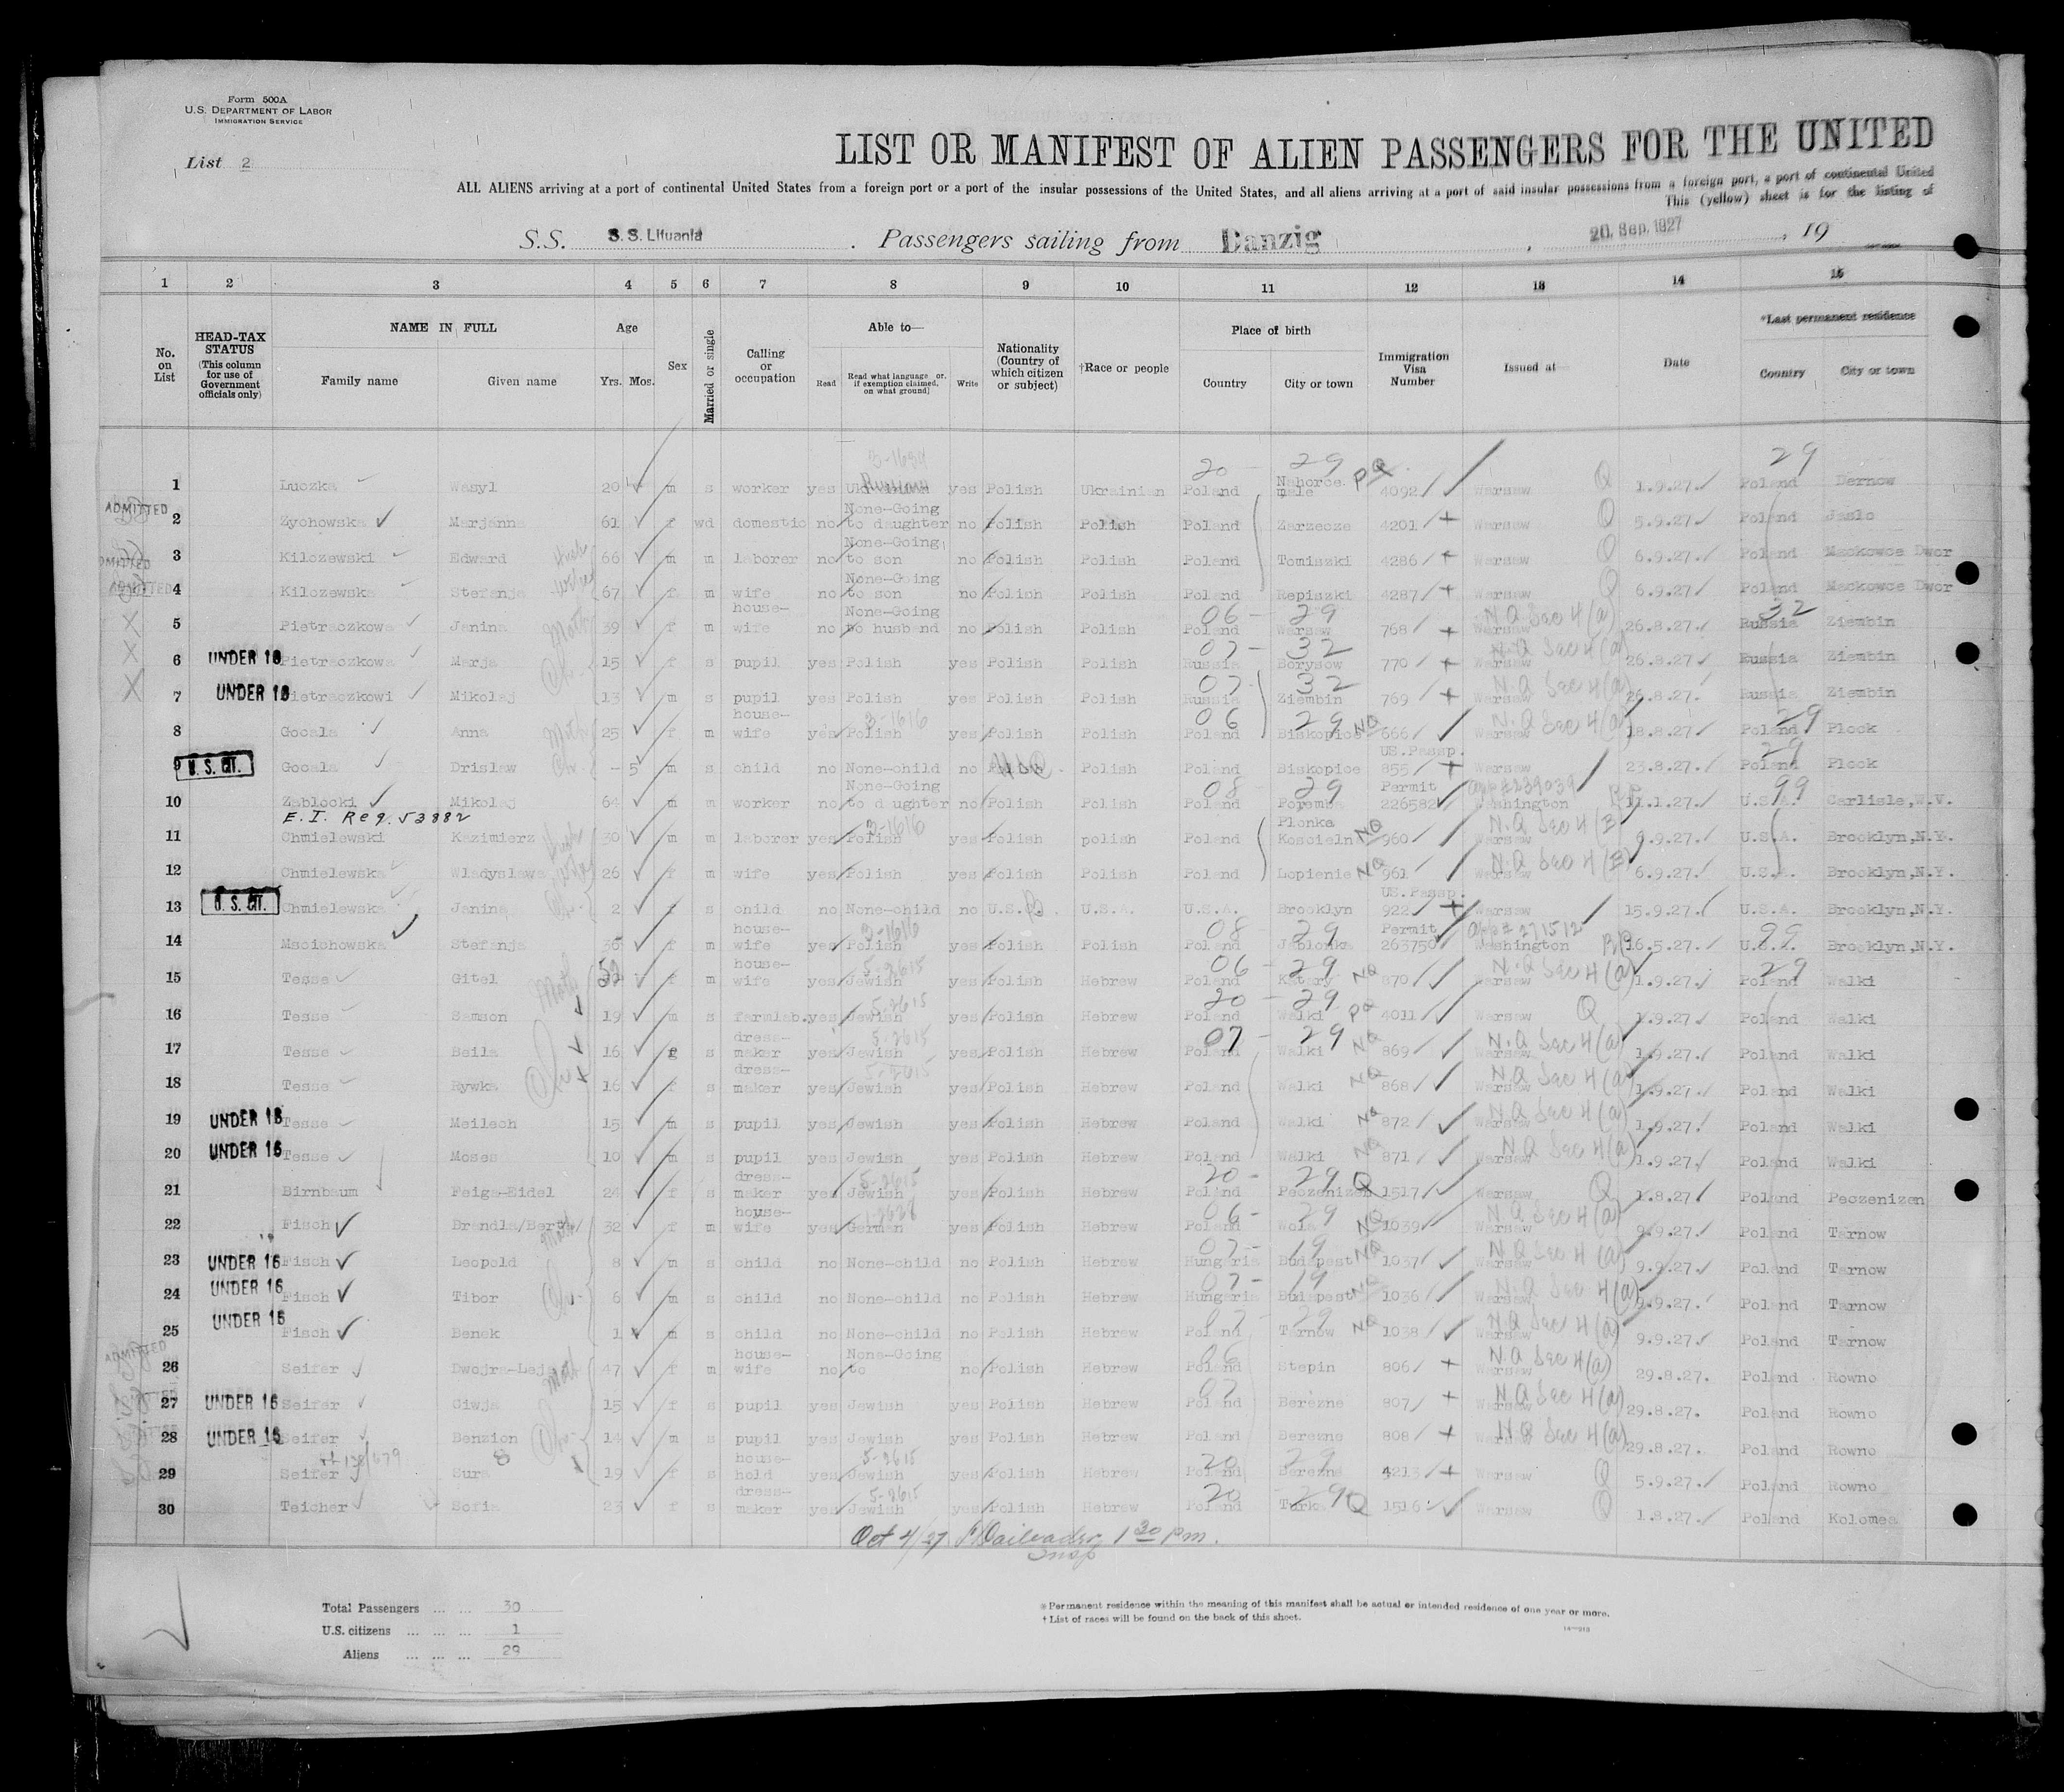 Form 500A
U.S. DEPARTMENT OF LABOR
IMMIGRATION SERVICE
List 2
LIST OR MANIFEST OF ALIEN PASSENGERS FOR THE UNITED
ALL ALIENS arriving at a port of continental United States from a foreign port or a port of the insular possessions of the United States, and all aliens arriving at a port of said insular possessions from a foreign port, a port of continental United
This (yellow) sheet is for the listing of
S.S. S.S. Lituania . Passengers sailing from Danzig , 20. Sep. 1927 , 19
1 2 3 4 5 6 7 8 9 10 11 12 13 14 15
No. on List
HEAD-TAX STATUS (This column for use of Government officials only)
NAME IN FULL Family name Given name
Age Yrs. Mos.
Sex
Married or single
Calling or occupation
Able to— Read Read what language or, if exemption claimed, on what ground) Write
Nationality (Country of which citizen or subject)
†Race or people
Place of birth Country City or town
Immigration Visa Number
Issued at
Date
*Last permanent residence Country City or town
1 Luczka Wasyl 20 m s worker yes yes Polish Ukrainian Poland Nahorce male PQ 4092 Warsaw Q 1.9.27. Poland Dernow
ADMITTED 2 Zychowska Marjanna 61 f wd domestic no None-Going to daughter no Polish Polish Poland Zarzecze 4201 Warsaw Q 5.9.27. Poland Jaslo
3 Kilczewski Edward 66 m m laborer no None-Going to son no Polish Polish Poland Tomiszki 4286 Warsaw Q 6.9.27. Poland Mackowce Dwor
ADMITTED 4 Kilczewska Stefanja 67 f m wife no None-Going to son no Polish Polish Poland Repiszki 4287 Warsaw Q 6.9.27 Poland Mackowce Dwor
X 5 Pietraczkowa Janina 39 f m house-wife no None-Going to husband no Polish Polish Poland Warsaw 768 Warsaw N.Q Sec 4(a) 26.8.27. Russia Ziembin
X 6 UNDER 16 Pietraczkowa Marja 15 f s pupil yes Polish yes Polish Polish Russia Borysow 770 Warsaw N.Q Sec 4(a) 26.8.27 Russia Ziembin
X 7 UNDER 16 Pietraczkowi Mikolaj 13 m s pupil yes Polish yes Polish Polish Russia Ziembin 769 Warsaw N.Q Sec 4(a) 26.8.27. Russia Ziembin
8 Gocala Anna 25 f m house-wife yes Polish yes Polish Polish Poland Biskopice NQ 666 Warsaw N.Q Sec 4(a) 18.8.27. Poland Plock
9 U.S. CIT. Gocala Drislaw - 5 m s child no None-child no Polish Poland Biskopice US.Passp. 855 Warsaw 23.8.27. Poland Plock
10 Zablocki Mikolaj 64 m m worker no None-Going to daughter no Polish Polish Poland Poremba Permit 226582 Washington 11.1.27. U.S.A. Carlisle,W.V.
E.I. Reg. 53882
11 Chmielewski Kazimierz 30 m m laborer yes Polish yes Polish polish Poland Plonka Koscieln NQ 960 Warsaw N.Q Sec 4(B) 6.9.27. U.S.A. Brooklyn,N.Y.
12 Chmielewska Wladyslawa 26 f m wife yes Polish yes Polish Polish Poland Lopienie NQ 961 Warsaw N.Q Sec 4(B) 6.9.27. U.S.A. Brooklyn,N.Y.
13 U.S. CIT. Chmielewska Janina 2 f s child no None-child no U.S.A. U.S.A. U.S.A. Brooklyn US.Passp. 922 Warsaw 15.9.27. U.S.A. Brooklyn,N.Y.
14 Mscichowska Stefanja 36 f m house-wife yes Polish yes Polish Polish Poland Jablonka Permit 263750 Washington 16.5.27. U.S.A. Brooklyn,N.Y.
15 Tesse Gitel f m house-wife yes Jewish yes Polish Hebrew Poland NQ 870 Warsaw N.Q Sec 4(a) 1.9.27. Poland Walki
16 Tesse Samson 19 m s farmlab. yes Jewish yes Polish Hebrew Poland Walki PQ 4011 Warsaw Q 1.9.27. Poland Walki
17 Tesse Beila 16 f s dress-maker yes Jewish yes Polish Hebrew Poland Walki NQ 869 Warsaw N.Q Sec 4(a) 1.9.27. Poland Walki
18 Tesse Rywka 16 f s dress-maker yes Jewish yes Polish Hebrew Poland Walki NQ 868 Warsaw N.Q Sec 4(a) 1.9.27. Poland Walki
19 UNDER 16 Tesse Meilech 15 m s pupil yes Jewish yes Polish Hebrew Poland Walki NQ 872 Warsaw N.Q Sec 4(a) 1.9.27. Poland Walki
20 UNDER 16 Tesse Moses 10 m s pupil yes Jewish yes Polish Hebrew Poland Walki NQ 871 Warsaw N.Q Sec 4(a) 1.9.27. Poland Walki
21 Birnbaum Feiga-Eidel 24 f s dress-maker yes Jewish yes Polish Hebrew Poland Peczenizen Q 1517 Warsaw Q 1.8.27 Poland Peczenizen
22 Fisch Brandla/Berta/ 32 f m house-wife yes German yes Polish Hebrew Poland Wola NQ 1039 Warsaw N.Q Sec 4(a) 9.9.27. Poland Tarnow
23 UNDER 16 Fisch Leopold 8 m s child no None-child no Polish Hebrew Hungaria Budapest NQ 1037 Warsaw N.Q Sec 4(a) 9.9.27. Poland Tarnow
24 UNDER 16 Fisch Tibor 6 m s child no None-child no Polish Hebrew Hungaria Budapest NQ 1036 Warsaw N.Q Sec 4(a) 9.9.27. Poland Tarnow
25 UNDER 16 Fisch Benek 1 m s child no None-child no Polish Hebrew Poland Tarnow NQ 1038 Warsaw N.Q Sec 4(a) 9.9.27. Poland Tarnow
ADMITTED 26 Seifer Dwojra-Leja 47 f m house-wife no None-Going to no Polish Hebrew Poland Stepin 806 Warsaw N.Q Sec 4(a) 29.8.27. Poland Rowno
27 UNDER 16 Seifer Giwja 15 f s pupil yes Jewish yes Polish Hebrew Poland Berezne 807 Warsaw N.Q Sec 4(a) 29.8.27. Poland Rowno
28 UNDER 16 Seifer Benzion 14 m s pupil yes Jewish yes Polish Hebrew Poland Berezne 808 Warsaw N.Q Sec 4(a) 29.8.27. Poland Rowno
29 Seifer Sura 19 f s house-hold yes Jewish yes Polish Hebrew Poland Berezne 4213 Warsaw Q 5.9.27. Poland Rowno
30 Teicher Sofia 23 f s dress-maker yes Jewish yes Polish Hebrew Poland Turka Q 1516 Warsaw Q 1.8.27. Poland Kolomea
Oct 4/27 1 30 pm.
Insp
Total Passengers ... ... 30
U.S. citizens ... ... ... 1
Aliens ... ... ... 29
* Permanent residence within the meaning of this manifest shall be actual or intended residence of one year or more.
† List of races will be found on the back of this sheet.